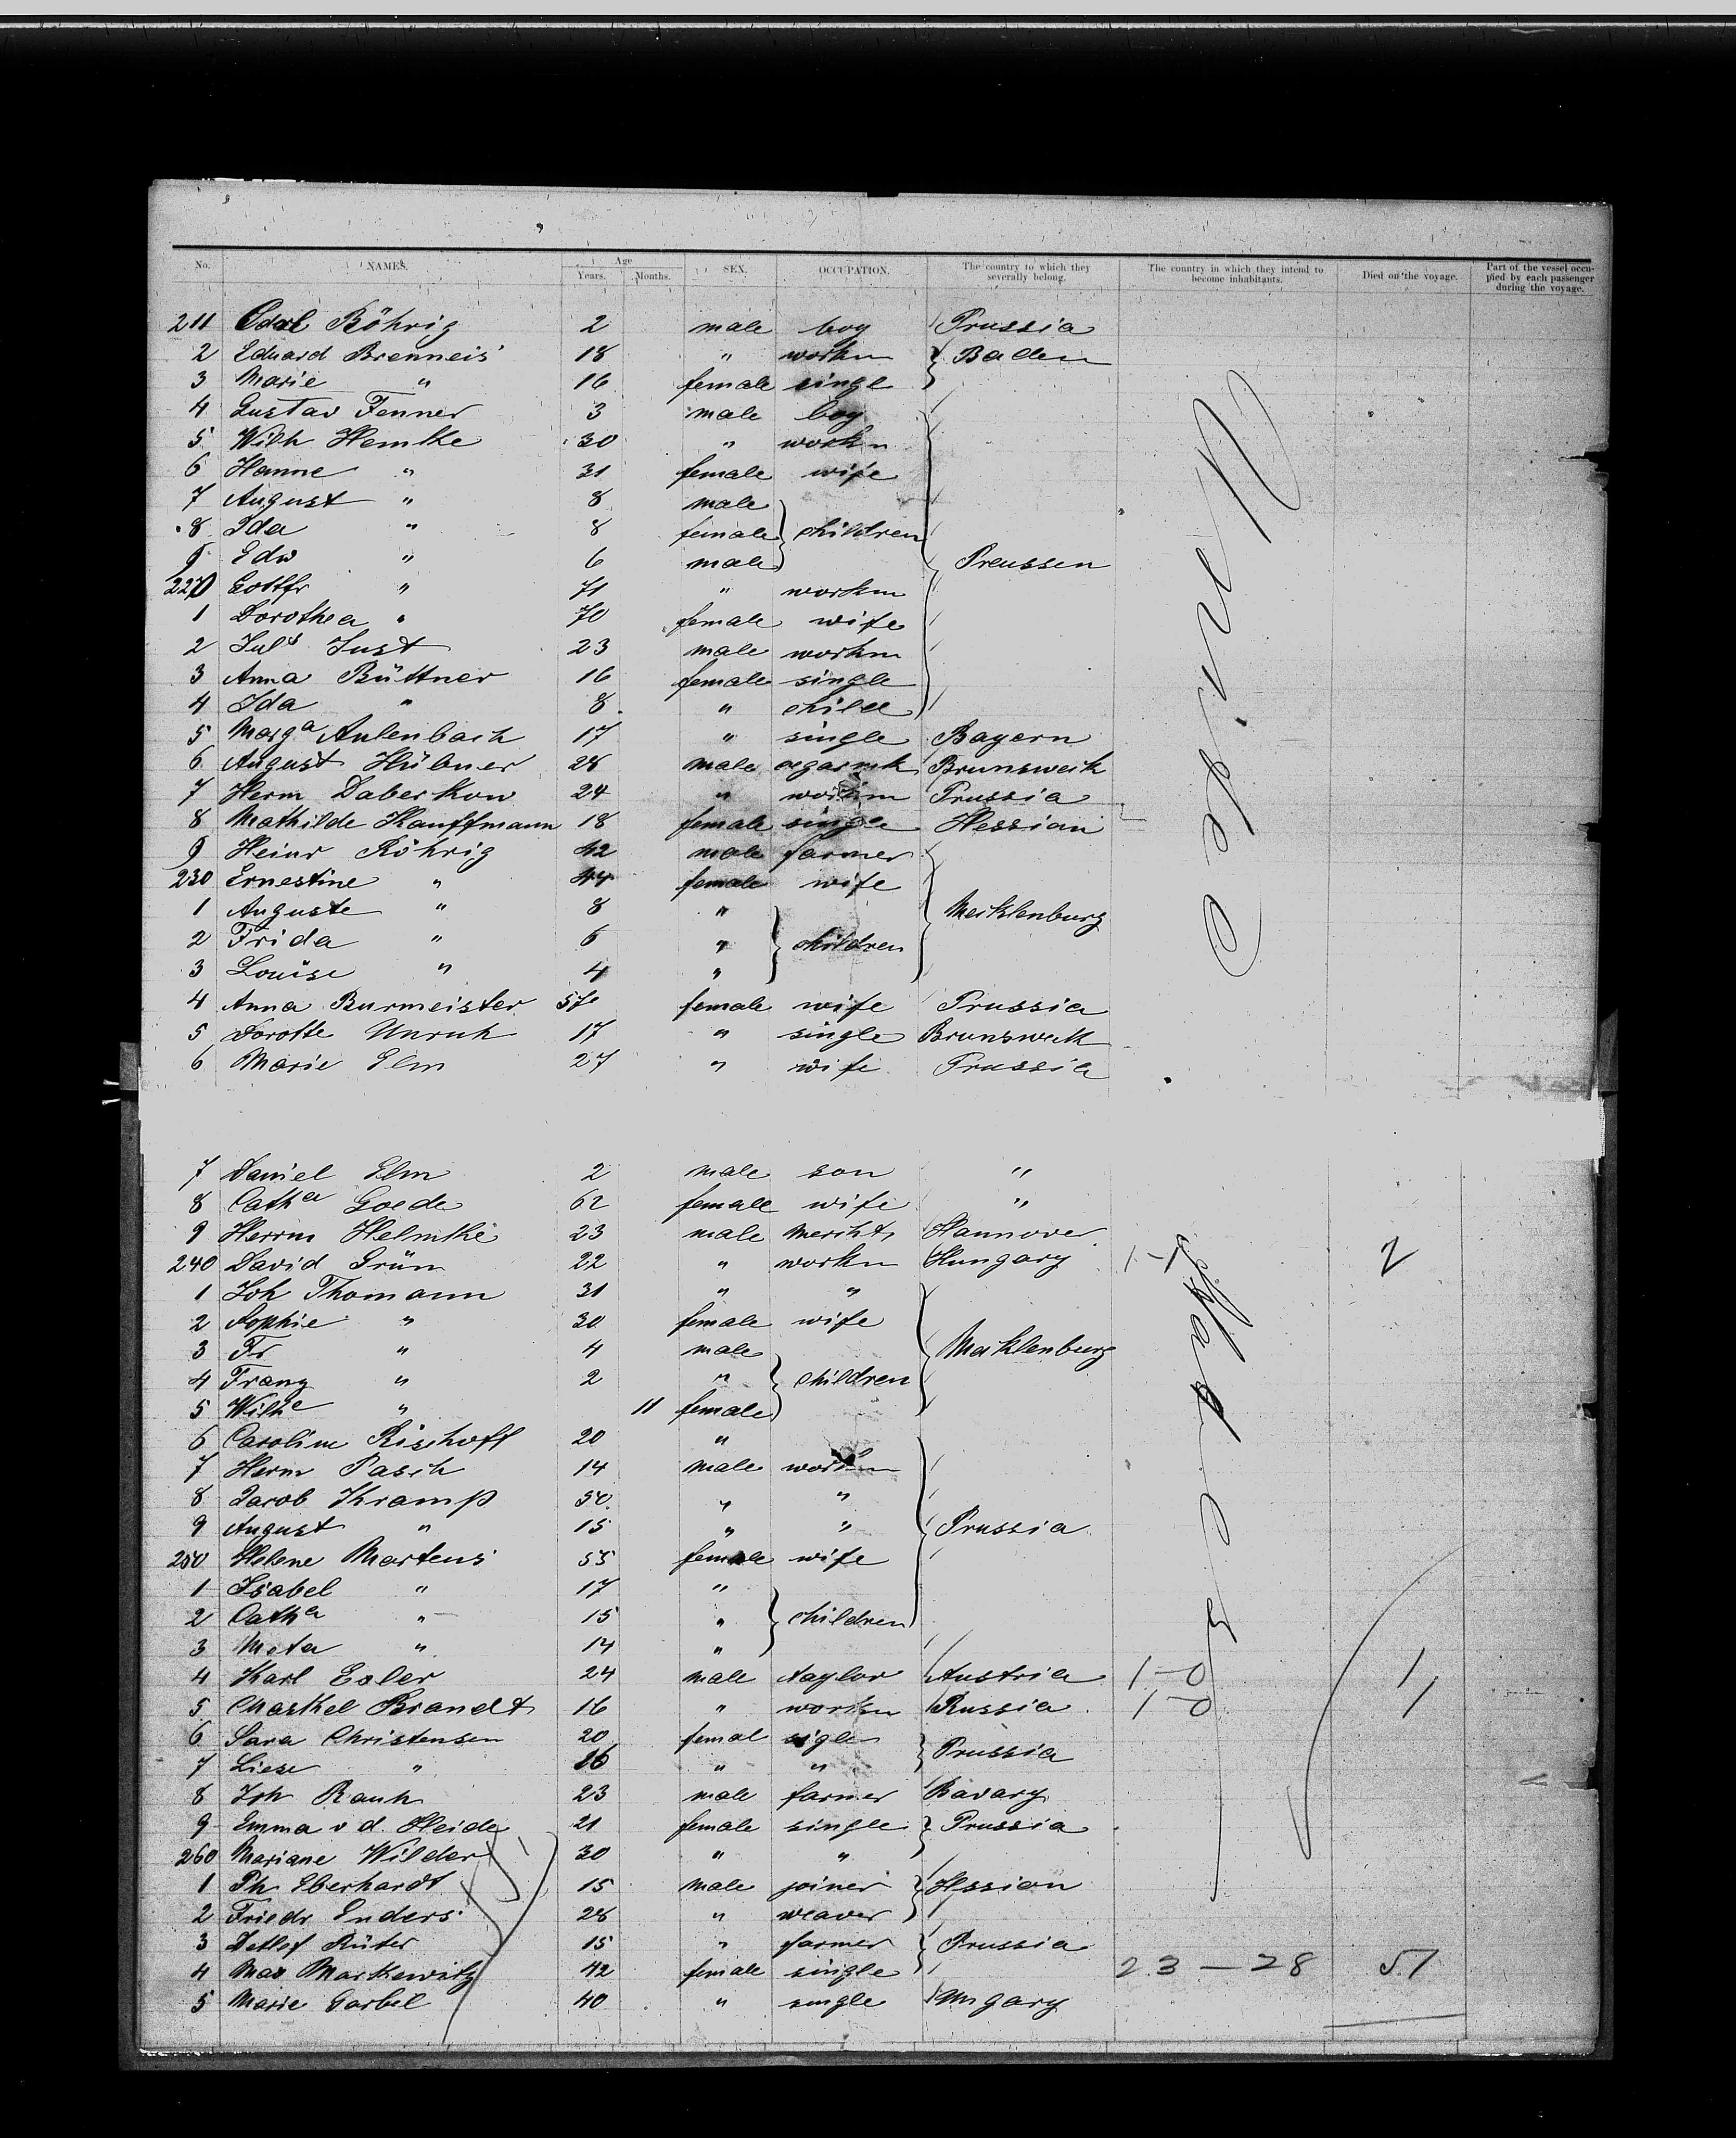 No. NAMES. Age Years. Months. SEX. OCCUPATION. The country to which they severally belong. The country in which they intend to become inhabitants. Died on the voyage. Part of the vessel occupied by each passenger during the voyage.
211 Röhrig 2 male boy Prussia
2 Eduard Brenneis 18 " workm Baden
3 Marie " 16 female singl
4 Gustav Fenner 3 male boy
5 Wilh Hemlke 30 " workm
6 Hanne " 31 female wife
7 August " 8 male
8 Ida " 8 female children
9 Edw " 6 male Preussen
220 Gottfr " 71 " workm
1 Dorothea " 70 female wife
2 Juls Just 23 male workm
3 Anna Büttner 16 female single
4 Ida " 8 " child
5 Marga Aulenbach 17 " single Bayern
6 August Hübner 28 male Brunsweik
7 Herm Daberkow 24 " workm Prussia
8 Mathilde Kauffmann 18 female single Hessian
9 Heinr Röhrig 42 male farmer
230 Ernestine " 44 female wife
1 Auguste " 8 " Mecklenburg
2 Frida " 6 " children
3 Louise " 4 "
4 Anna Burmeister 57 female wife Prussia
5 Dorotte Unruh 17 " single Brunsweik
6 Marie Elm 27 " wife Prussia
7 Daniel Elm 2 male son "
8 Catha Goede 62 female wife "
9 Herrm Helmke 23 male Mercht Hannover
240 David Grün 22 " workm Hungary 2
1 Joh Thomann 31 " "
2 Sophie " 30 female wife
3 Fr " 4 male Mecklenburg
4 Franz " 2 " children
5 Wilhe " 11 female
6 Caroline Rischoff 20 "
7 Herm Pasch 14 male workm
8 Jacob Kramp 50 " "
9 August " 15 " " Prussia
250 Helene Martens 55 female wife
1 Isabel " 17 "
2 Catha " 15 " children
3 Meta " 14 "
4 Karl Exler 24 male taylor Austria 1-0 1
5 Maskel Brandt 16 " workm Russia 1-0 1
6 Sara Christensen 20 femal sigle
7 Liese " 16 " " Prussia
8 Joh Rauh 23 male farmer Bavary
9 Emma v d. Heide 21 female single Prussia
260 Mariane Wilder 30 " "
1 Ph Eberhardt 15 male joiner Hessian
2 Friedr Enders 28 " weaver
3 Detlef Rüter 15 " farmer Prussia
4 Max Markewitz 42 female single 23 - 28 51
5 Marie Garbel 40 " single Ungary